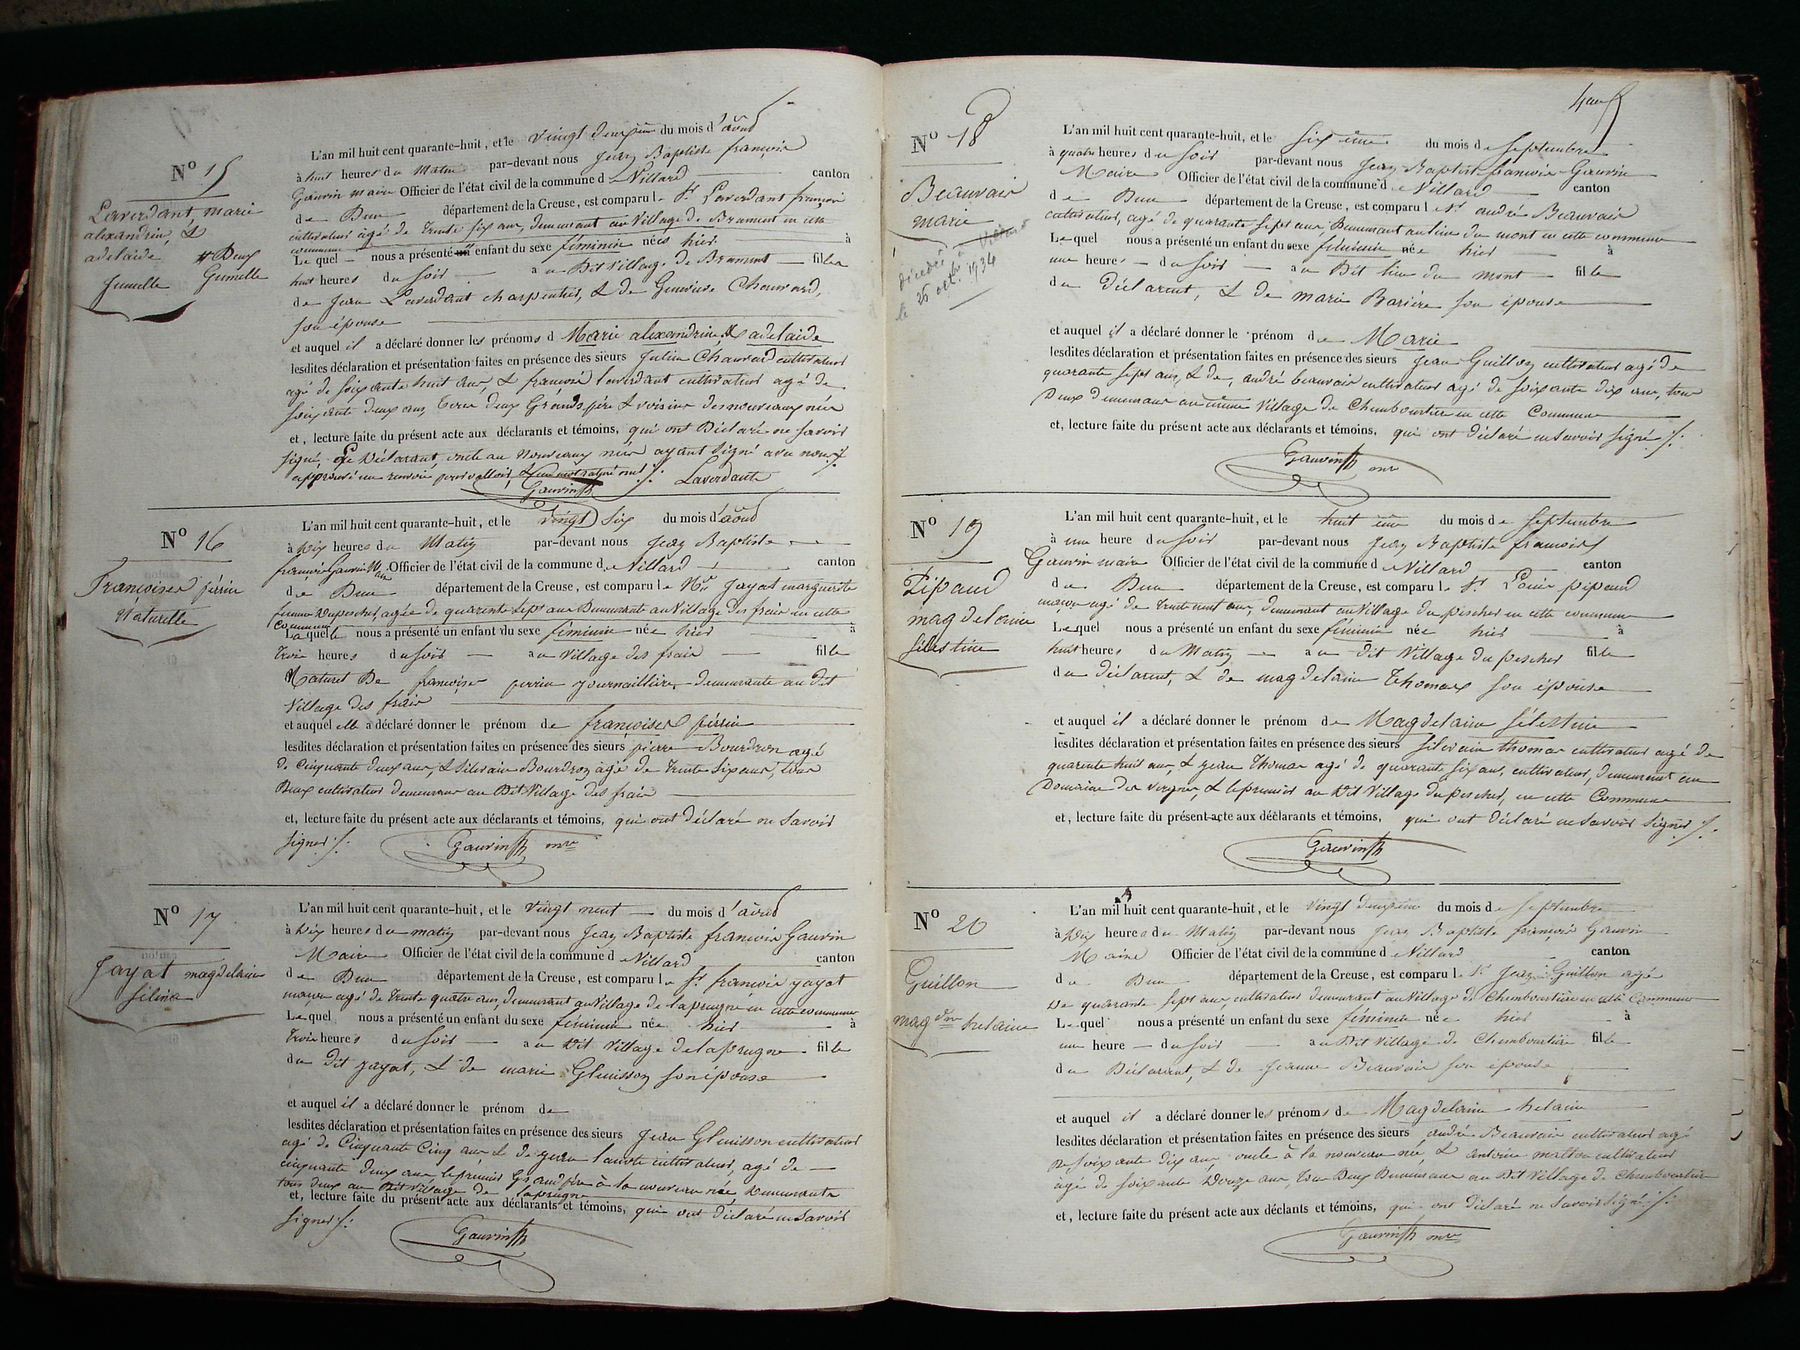 N° 15
Laverdant, marie
alexandrine, &
adelaide # Deux
Jumelle Gemelle
L'an mil huit cent quarante-huit, et le vingt deuxième du mois d'août
à huit heures du Matin par-devant nous Jean Baptiste françois
Gauvin maire Officier de l'état civil de la commune de Villard canton
de Dun département de la Creuse, est comparu le Sr Laverdant françois
cultivateur agé de trente six ans, demeurant au Village de Brament en cette
commune
Lequel nous a présenté un enfant du sexe féminin nées hier à
huit heures du Soir au Dit Village de Brament filles
de Jean Laverdant charpentier, & de Genevieve Chauvard,
son épouse
et auquel il a déclaré donner les prénoms d Marie alexandrine, & adelaide
lesdites déclaration et présentation faites en présence des sieurs Julien Chauvard cultivateur
agé de soixante huit ans, & françois laverdant cultivateur agé de
soixante deux ans, tous deux Grands père & voisins des nouveaux nées
et, lecture faite du présent acte aux déclarants et témoins, qui ont Déclaré ne savoir
signé, Le Déclarant, oncle au Nouveaux nées ayant signé avec nous
approuvé un renvoi
Laverdant
Gauvin
N° 16
Francoises perrin
Naturelle
L'an mil huit cent quarante-huit, et le vingt Six du mois d'août
à Dix heures du Matin par-devant nous Jean Baptiste
françois Gauvin Maire Officier de l'état civil de la commune de Villard canton
de Dun département de la Creuse, est comparu la Jayat marguerite
femme agée de quarante sept ans Demeurante au Village des frais en cette
Commune
Laquelle nous a présenté un enfant du sexe féminin née hier à
trois heures du soir au Village des frais fille
Naturel De françoise perrin journaillière, demeurante au dit
Village des frais
et auquel elle a déclaré donner le prénom de françoises perrin
lesdites déclaration et présentation faites en présence des sieurs pierre Bourdron agé
de Cinquante deux ans, & Silvain Bourdron agé de trente Six ans, tous
Deux cultivateur demeurans au Dit Village des frais
et, lecture faite du présent acte aux déclarants et témoins, qui ont déclaré ne savoir
signer
Gauvin mre
N° 17
Jayat magdelaine
Silina
L'an mil huit cent quarante-huit, et le vingt neuf du mois d'août
à Dix heures du matin par-devant nous Jean Baptiste françois Gauvin
Maire Officier de l'état civil de la commune de Villard canton
de Dun département de la Creuse, est comparu le Sr françois jayat
maçon agé de trente quatre ans, demeurant au Village de laprugne en cette commune
Lequel nous a présenté un enfant du sexe féminin née hier à
trois heures du soir au Dit Village de laprugne fille
du dit jayat, & de marie Glenisson son épouse
et auquel il a déclaré donner le prénom de
lesdites déclaration et présentation faites en présence des sieurs Jean Glenisson cultivateur
agé de Cinquante Cinq ans & de jean cultivateur, agé de
cinquante deux ans le premier Grand père à la nouveau née, Demeurants
tous deux au Dit Village de laprugne
et, lecture faite du présent acte aux déclarants et témoins, qui ont déclaré ne Savoir
signer
Gauvin
4
N° 18
Beauvais
marie
décédée à Villard
le 26 oct. 1934
L'an mil huit cent quarante-huit, et le Sixième du mois de septembre
à quatre heures du soir par-devant nous Jean Baptiste françois Gauvin
Maire Officier de l'état civil de la commune de Villard canton
de Dun département de la Creuse, est comparu le Sr andré Beauvais
cultivateur, agé de quarante sept ans, Demeurant au lieu du mont en cette commune
Lequel nous a présenté un enfant du sexe féminin née hier à
une heures du soir au Dit lieu du mont fille
du Déclarent, & de marie Barière son épouse
et auquel il a déclaré donner le prénom de Marie
lesdites déclaration et présentation faites en présence des sieurs Jean Guillon cultivateur agé de
quarante sept ans, & de, andré beauvais cultivateur agé de soixante dix ans, tous
Deux demeurans au même Village de Chamboutière en cette Commune
et, lecture faite du présent acte aux déclarants et témoins, qui ont déclaré ne savoir signé
Gauvin mre
N° 19
Pipaud
magdelaine
silestine
L'an mil huit cent quarante-huit, et le huitième du mois de septembre
à une heure du soir par-devant nous Jean Baptiste françois
Gauvin maire Officier de l'état civil de la commune de Villard canton
de Dun département de la Creuse, est comparu le Sr Louis pipaud
maçon agé de trente huit ans, demeurant au Village du pescher en cette commune
Lequel nous a présenté un enfant du sexe féminin née hier à
huit heures du Matin au dit Village du pescher fille
du déclarent, & de magdelaine Thomas son épouse
et auquel il a déclaré donner le prénom de Magdelaine Silestine
lesdites déclaration et présentation faites en présence des sieurs silvain thomas cultivateur agé de
quarante huit ans, & jean Thomas agé de quarante six ans, cultivateur, demeurant au
Domaine des vergnes, & le premier au Dit Village du pescher, en cette Commune
et, lecture faite du présent acte aux déclarants et témoins, qui ont déclaré ne savoir signer
Gauvin
N° 20
Guillon
magdne helaine
L'an mil huit cent quarante-huit, et le vingt deuxième du mois de septembre
à Dix heures du Matin par-devant nous Jean Baptiste françois Gauvin
Maire Officier de l'état civil de la commune de Villard canton
de Dun département de la Creuse, est comparu le Sr Jean Guillon agé
de quarante sept ans cultivateur demeurant au Village de Chamboutière en cette Commune
Lequel nous a présenté un enfant du sexe féminin née hier à
une heure du soir au Dit Village de Chamboutière fille
du Déclarant, & de Jeanne Beauvais son épouse
et auquel il a déclaré donner les prénoms de Magdelaine helaine
lesdites déclaration et présentation faites en présence des sieurs andré Beauvais cultivateur agé
de soixante dix ans oncle à la nouveau née, & antoine mathon cultivateur
agé de soixante Douze ans, tous Deux Demeurans au Dit Village de Chamboutière
et, lecture faite du présent acte aux déclants et témoins, qui ont Déclaré ne savoir signé
Gauvin mre